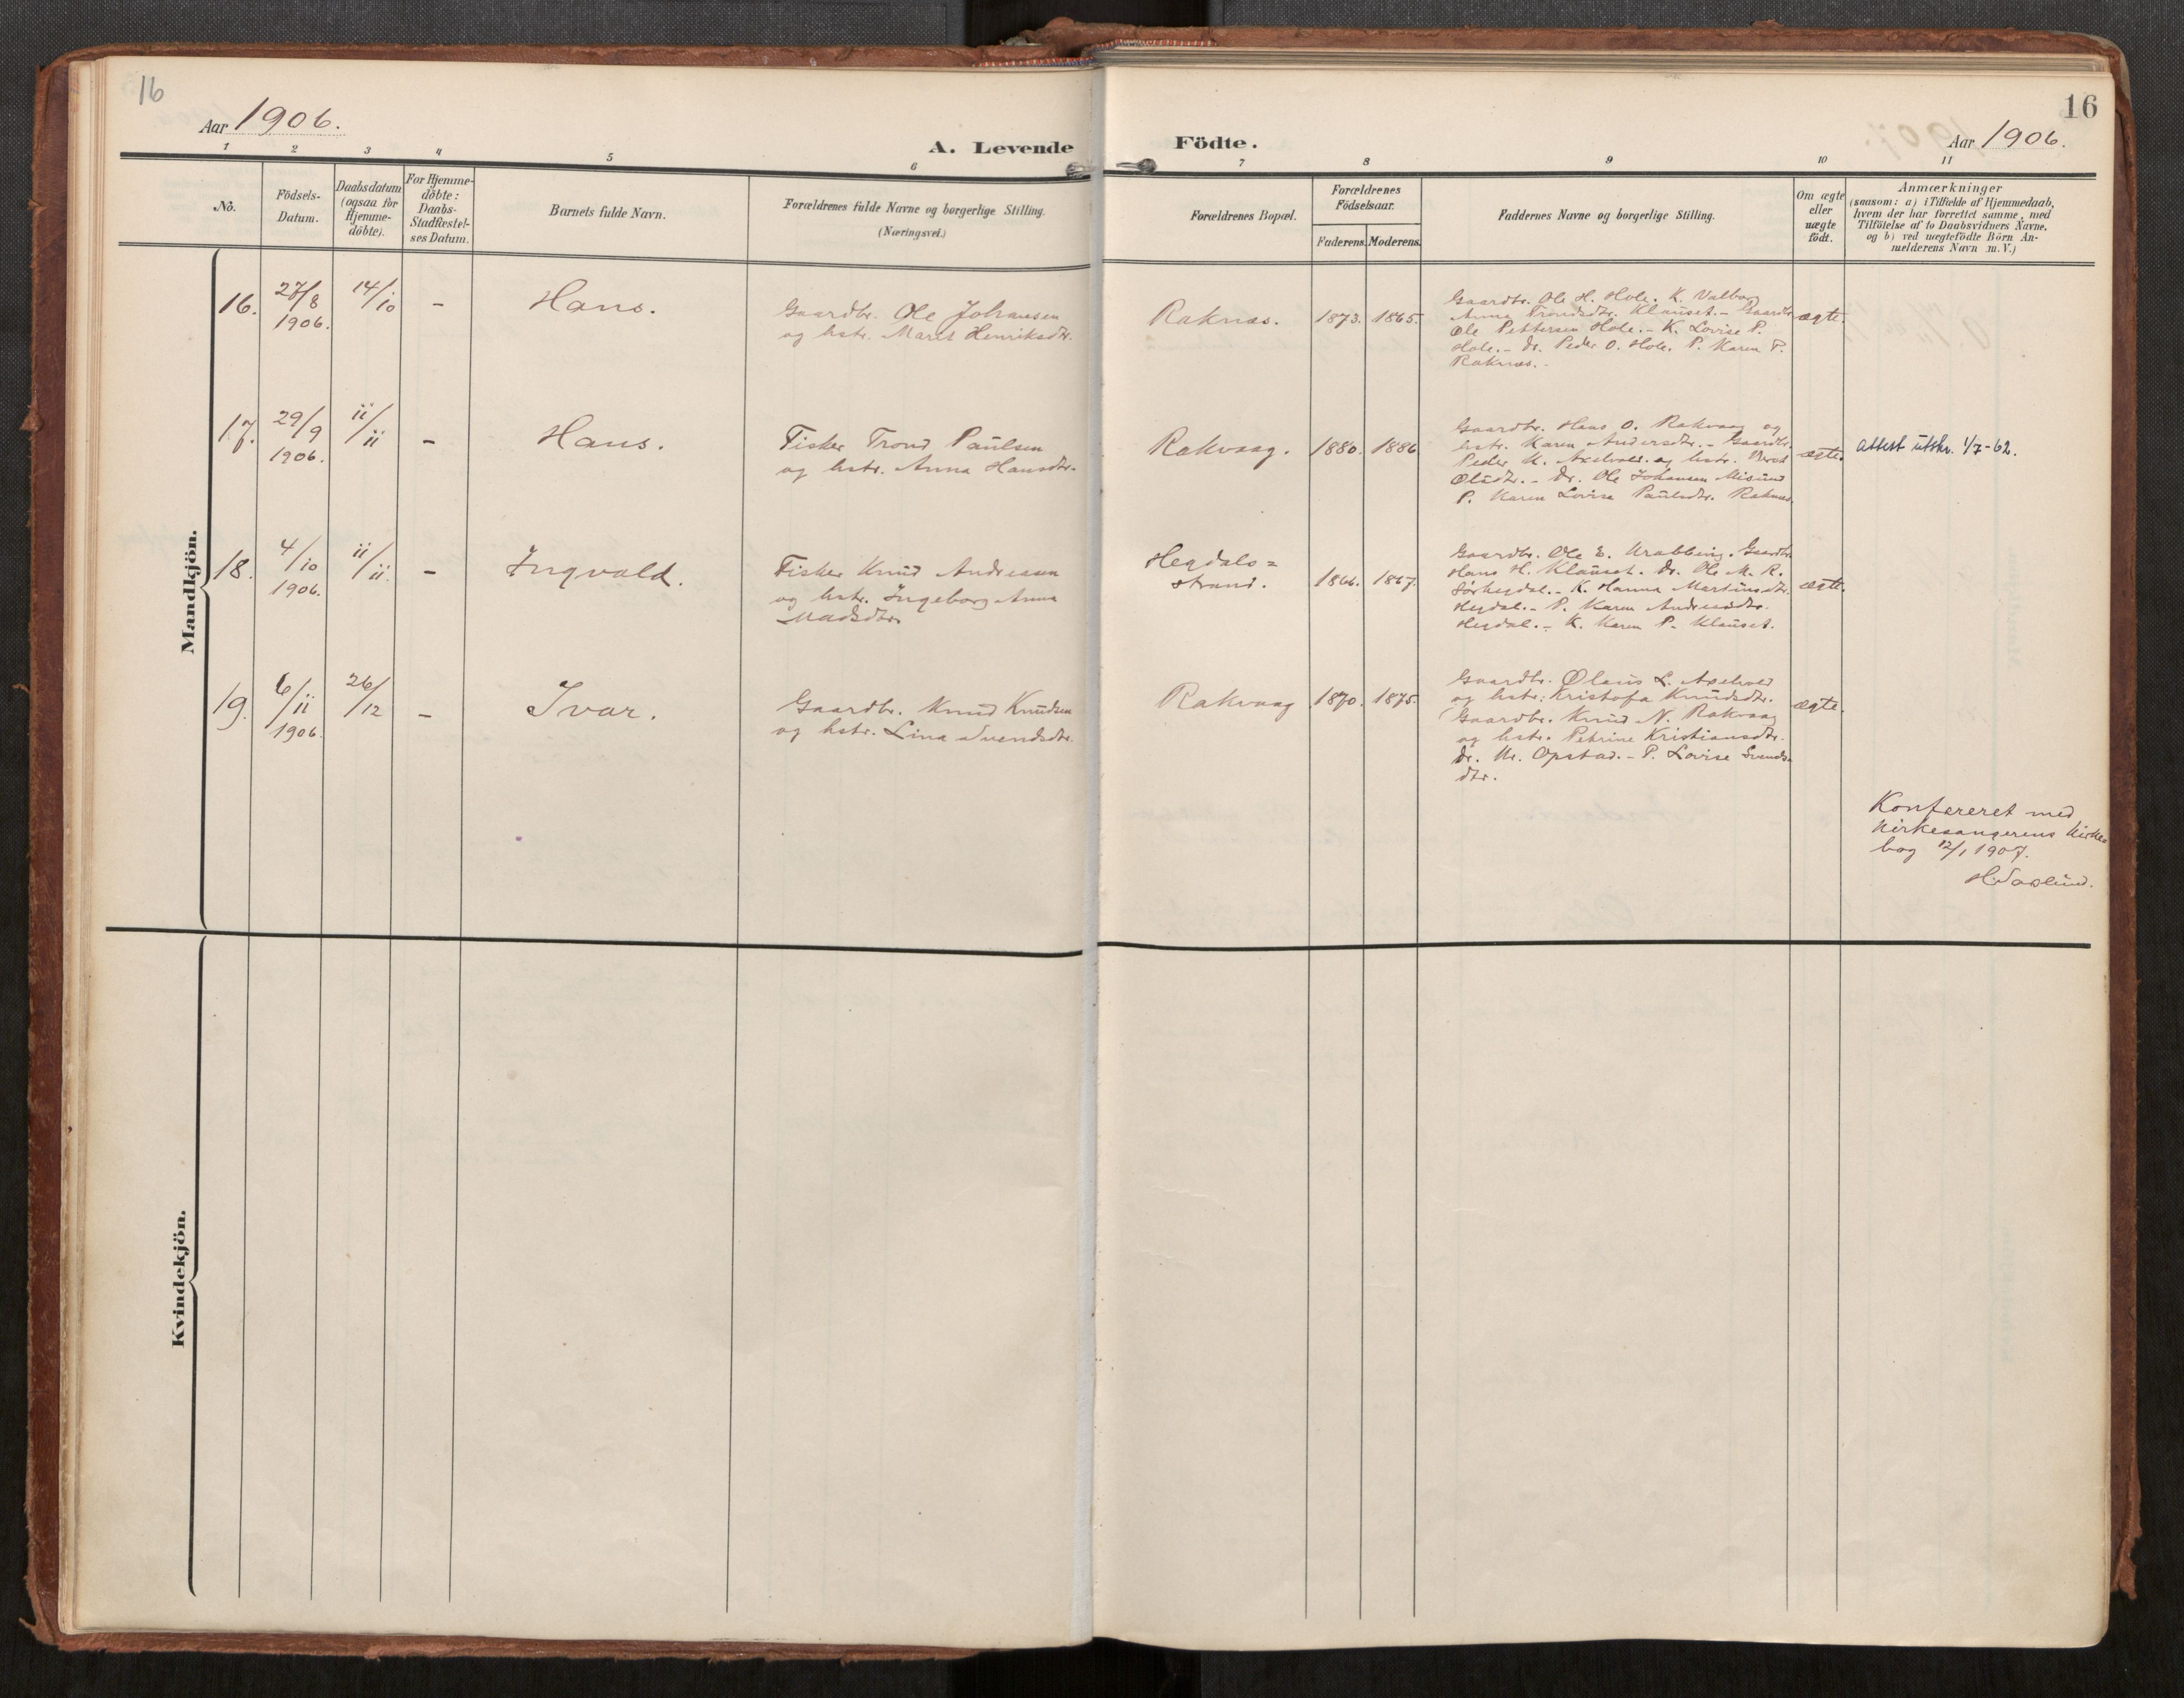 16
Aar 1906.
A. Levende
1 2 3 4 5 6
No.
Födsels-
Datum.
Daabsdatum
(ogsaa for
Hjemme-
döbte).
For Hjemme-
döbte:
Daabs-
Stadfestel-
ses Datum.
Barnets fulde Navn.
Forældrenes fulde Navne og borgerlige Stilling.
(Næringsvei.)
Mandkjön.
16. 27/8 1906. 14/10 - Hans.
Gaardbr. Ole Johansen
og hstr. Marit Henriksdtr.
17. 29/9 1906. 11/11 - Hans.
Fisker Trond Paulsen
og hstr. Anna Hansdtr.
18. 4/10 1906. 11/11. - Ingvald.
Fisker Knud Andreasen
og hstr. Ingeborg Anna
Madsdtr.
19. 6/11 1906. 26/12 - Ivar.
Gaardbr. Knud Knudsen
og hstr. Lina Svendsdtr.
Kvindekjön.
16
Födte.
Aar 1906.
7 8 9 10 11
Forældrenes Bopæl.
Forældrenes
Födselsaar.
Faderens. Moderens.
Faddernes Navne og borgerlige Stilling.
Om ægte
eller
uægte
födt.
Anmærkninger
(saasom: a) i Tilfælde af Hjemmedaab,
hvem der har forrettet samme, med
Tilföielse af to Daabsvidners Navne,
og b) ved uægtefödte Börn An-
melderens Navn m. V.)
Raknæs. 1873. 1865.
Gaardbr. Ole H. Hole. K. Valborg
Anna Trondsdtr. Klauset. - Gaardbr.
Ole Pettersen Hole. - K. Lovise P.
Hole. - Dr. Peder O. Hole. P. Karen P.
Raknæs. -
ægte.
Rakvaag. 1880. 1886
Gaardbr. Hans O. Rakvaag og
hstr. Karen Andersdtr. - Gaardbr.
Peder K. Axelvold og hstr. Berit
Olsdtr. - Dr. Ole Johansen Misund
P. Karen Lovise Paulsdtr. Raknæs.
ægte.
attest utskr. 1/7-62.
Hegdals=
strand. 1866. 1867.
Gaardbr. Ole E. Krabbing. Gaardbr.
Hans H. Klauset. Dr. Ole M. R.
Sørhegdal. - K. Hanna Martinsdtr.
Hegdal. - P. Karen Andreasdtr.
Hegdal. - K. Karen P. Klauset.
ægte.
Rakvaag 1870. 1875.
Gaardbr. Olaus L. Axelvold
og hstr. Kristofa Knudsdtr.
Gaardbr. Knud N. Rakvaag
og hstr. Petrine Kristiansdtr.
Dr. Opstad. - P. Lovise Svends-
dtr.
ægte.
Konfereret med
Kirkesangerens Kirke-
bog 12/1 1907.
H. Saxlund.